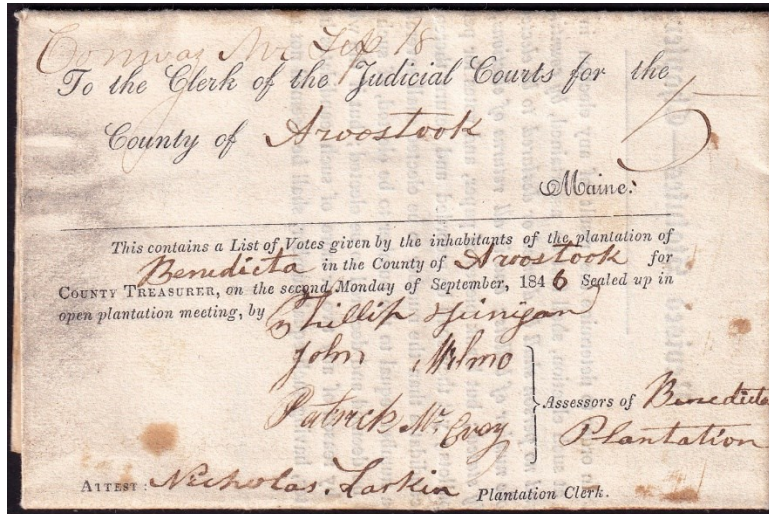 Conway Me Sep 18
To the Clerk of the Judicial Courts for the
County of Aroostook
5
Maine.
This contains a List of Votes given by the inhabitants of the plantation of
Benedicta in the County of Aroostook for
COUNTY TREASURER, on the second Monday of September, 1846 Sealed up in
open plantation meeting, by
Phillip Finigan
John Milmo
Patrick Mc Evoy
Assessors of Benedicta
Plantation
ATTEST: Nicholas Larkin Plantation Clerk.